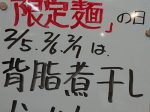 「限定麺」の日
2/5.2/6.2/7は.
背脂煮干し